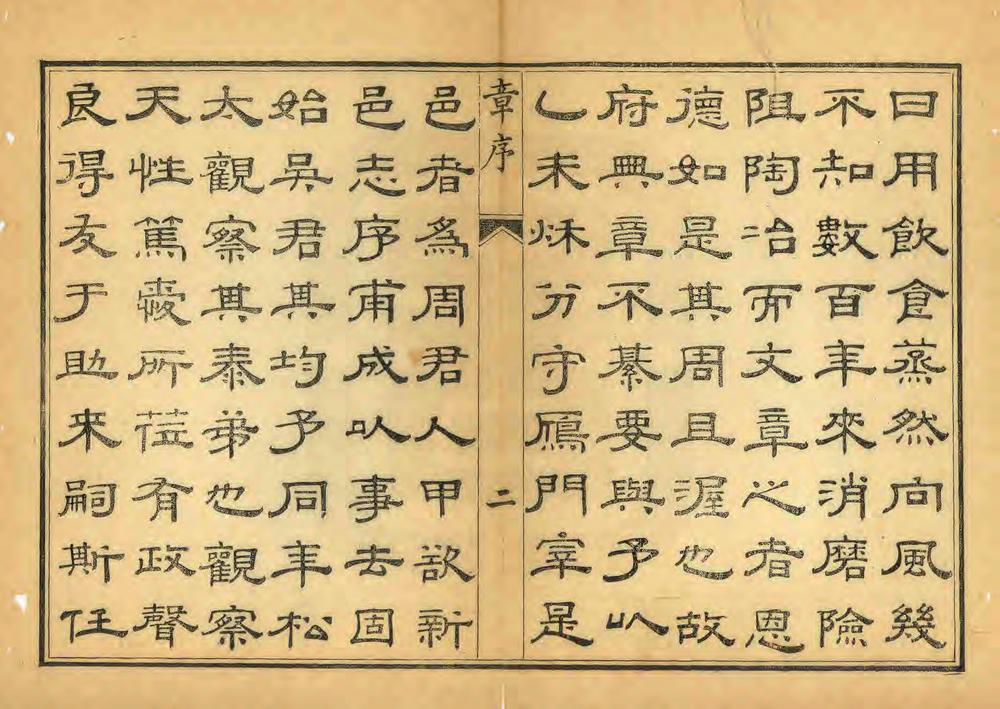 日用飲食蒸然向風幾
不知數百年來消磨險
阻陶冶而文章之者恩
德如是其周且渥也故
府典章不綦要與予以
乙未秌分守鴈門宰是
章序 二
邑者為周君人甲欲新
邑志序甫成以事去固
始吳君其均予同年松
太觀察其泰弟也觀察
天性篤愛所蒞有政聲
良得友于助来嗣斯任